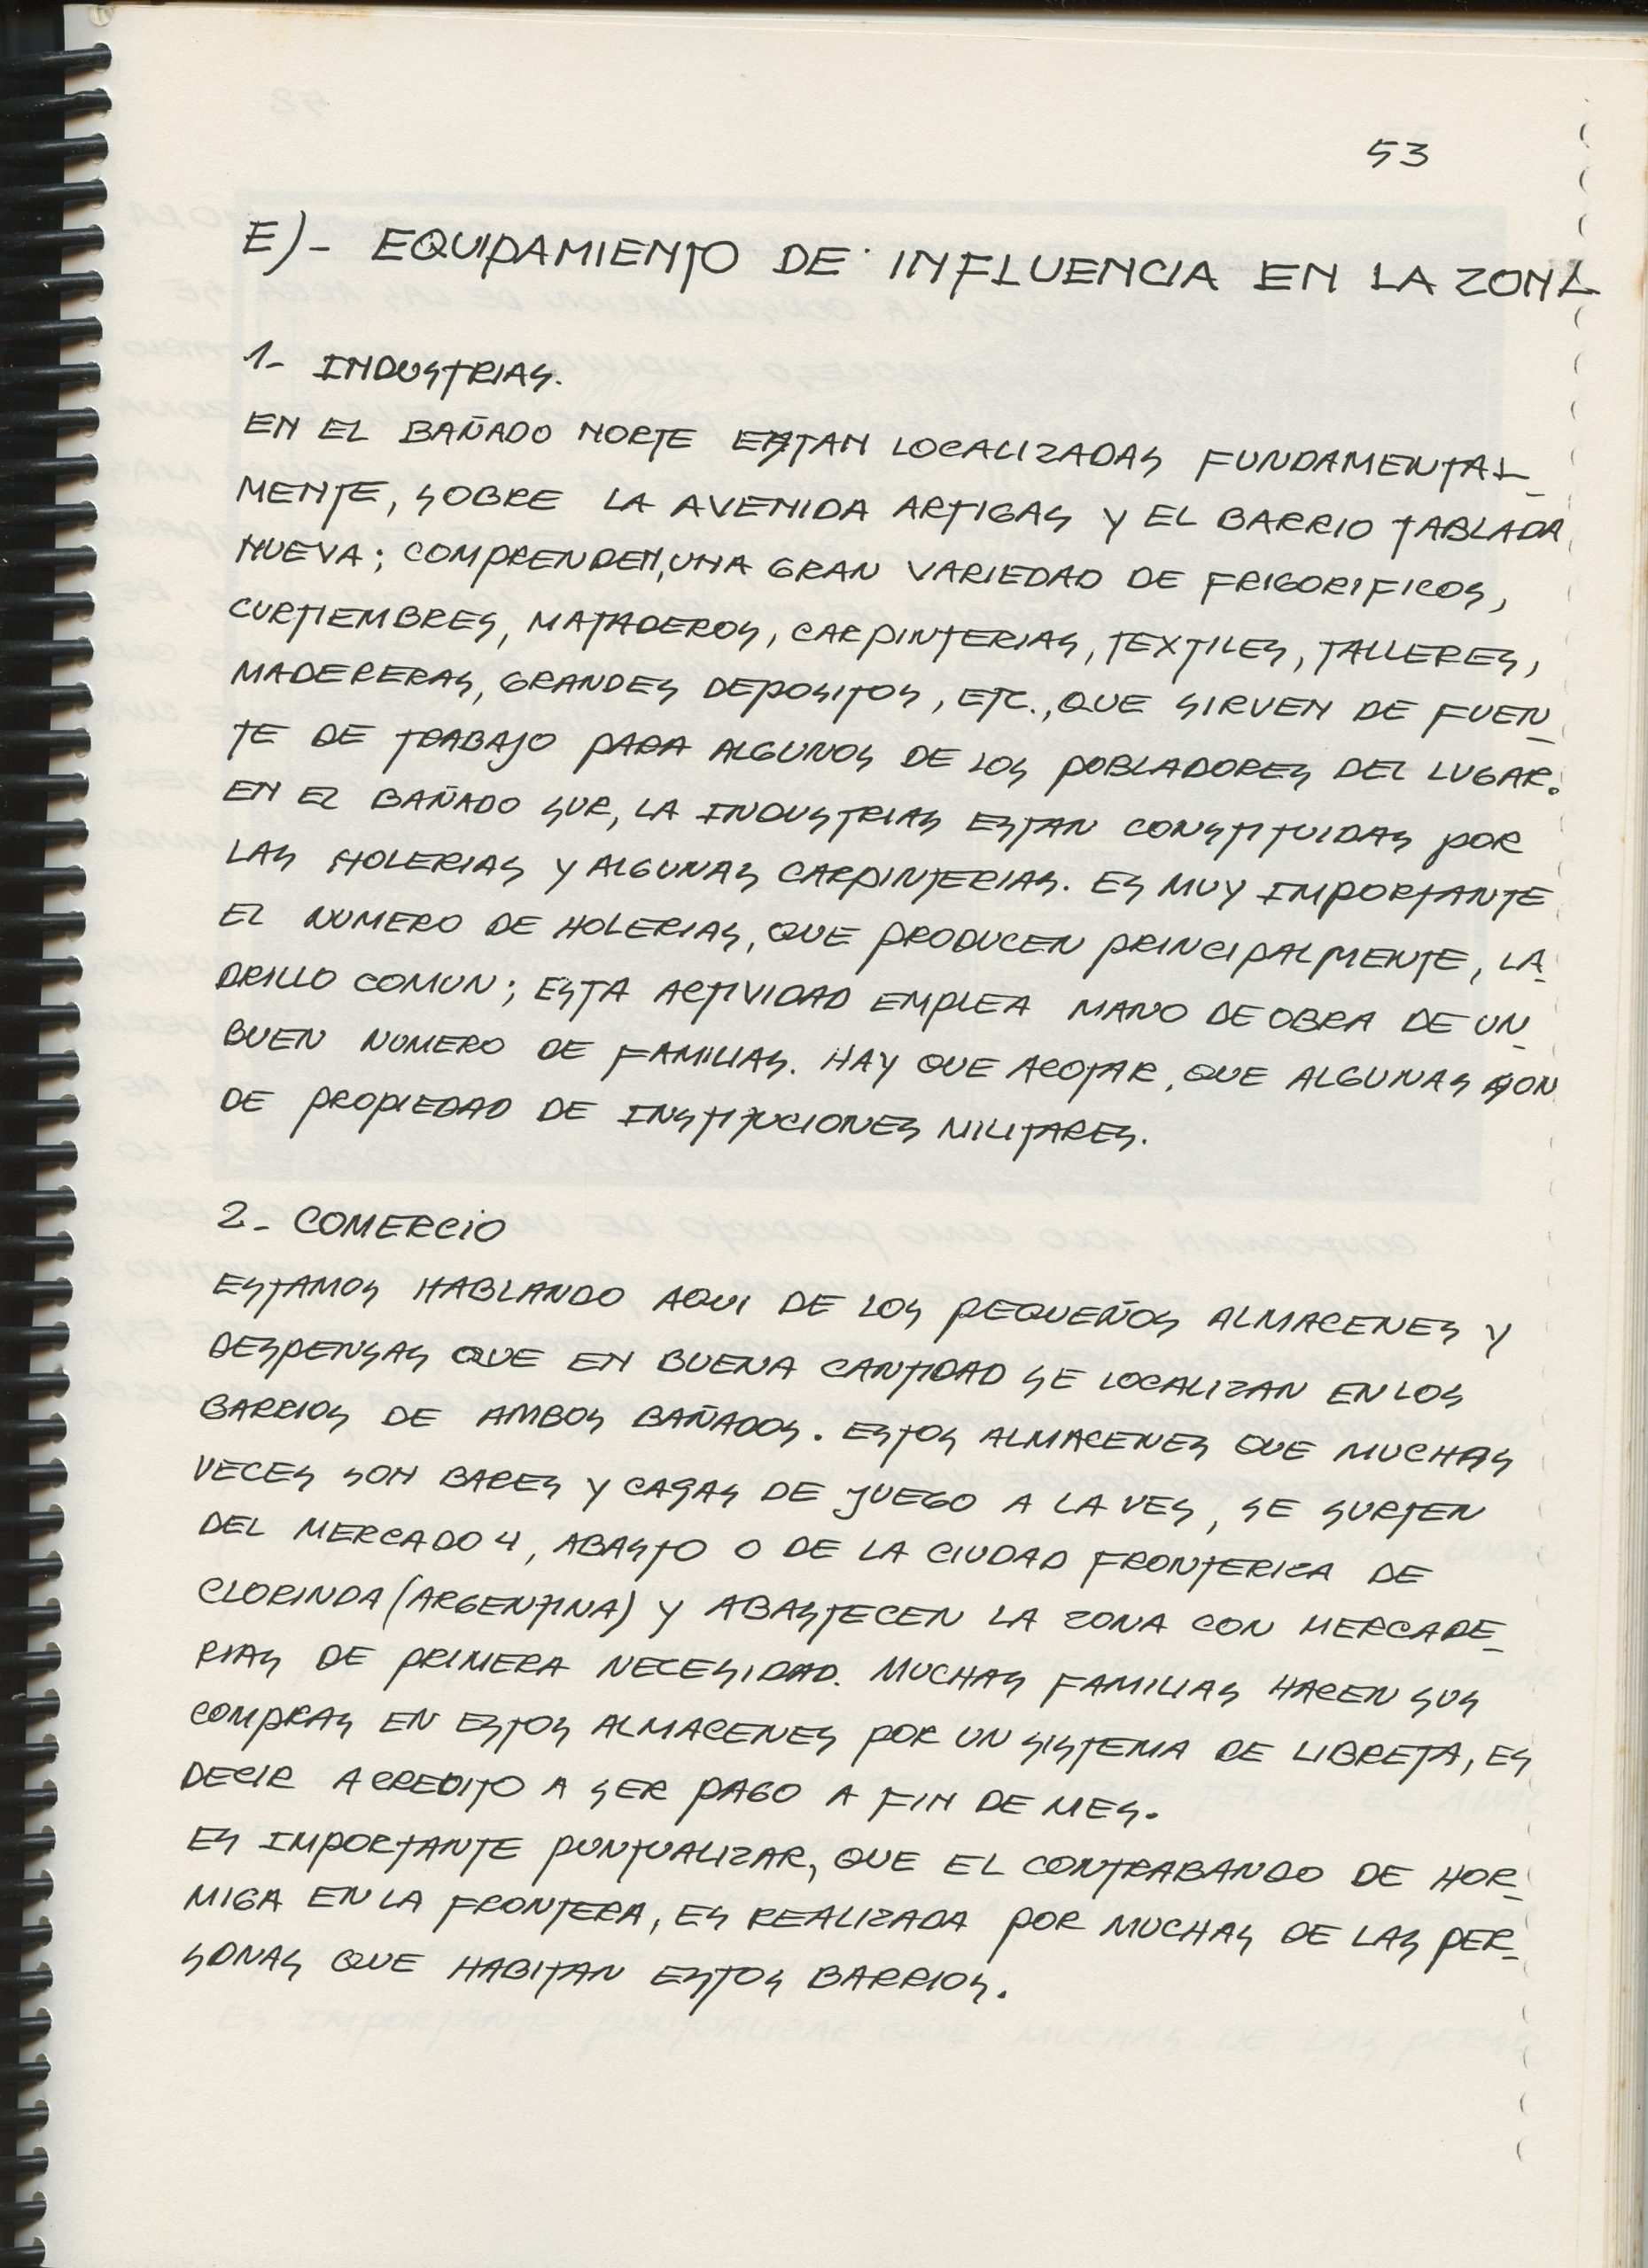 53
E)- EQUIPAMIENTO DE INFLUENCIA EN LA ZONA
1- INDUSTRIAS.
EN EL BAÑADO NORTE ESTAN LOCALIZADAS FUNDAMENTAL_
MENTE, SOBRE LA AVENIDA ARTIGAS Y EL BARRIO TABLADA
NUEVA; COMPRENDEN, UNA GRAN VARIEDAD DE FRIGORIFICOS,
CURTIEMBRES, MATADEROS, CARPINTERIAS, TEXTILES, TALLERES,
MADERERAS, GRANDES DEPOSITOS, ETC., QUE SIRVEN DE FUEN_
TE DE TRABAJO PARA ALGUNOS DE LOS POBLADORES DEL LUGAR.
EN EL BAÑADO SUR, LA INDUSTRIAS ESTAN CONSTITUIDAS POR
LAS HOLERIAS Y ALGUNAS CARPINTERIAS. ES MUY IMPORTANTE
EL NUMERO DE HOLERIAS, QUE PRODUCEN PRINCIPALMENTE, LA_
DRILLO COMUN; ESTA ACTIVIDAD EMPLEA MANO DE OBRA DE UN_
BUEN NUMERO DE FAMILIAS. HAY QUE ACOTAR, QUE ALGUNAS SON
DE PROPIEDAD DE INSTITUCIONES MILITARES.
2- COMERCIO
ESTAMOS HABLANDO AQUI DE LOS PEQUEÑOS ALMACENES Y
DESPENSAS QUE EN BUENA CANTIDAD SE LOCALIZAN EN LOS
BARRIOS DE AMBOS BAÑADOS. ESTOS ALMACENES QUE MUCHAS
VECES SON BARES Y CASAS DE JUEGO A LA VES, SE SURTEN
DEL MERCADO 4, ABASTO O DE LA CIUDAD FRONTERIZA DE
CLORINDA (ARGENTINA) Y ABASTECEN LA ZONA CON MERCADE_
RIAS DE PRIMERA NECESIDAD. MUCHAS FAMILIAS HACEN SUS
COMPRAS EN ESTOS ALMACENES POR UN SISTEMA DE LIBRETA, ES
DECIR A CREDITO A SER PAGO A FIN DE MES.
ES IMPORTANTE PUNTUALIZAR, QUE EL CONTRABANDO DE HOR_
MIGA EN LA FRONTERA, ES REALIZADA POR MUCHAS DE LAS PER_
SONAS QUE HABITAN ESTOS BARRIOS.